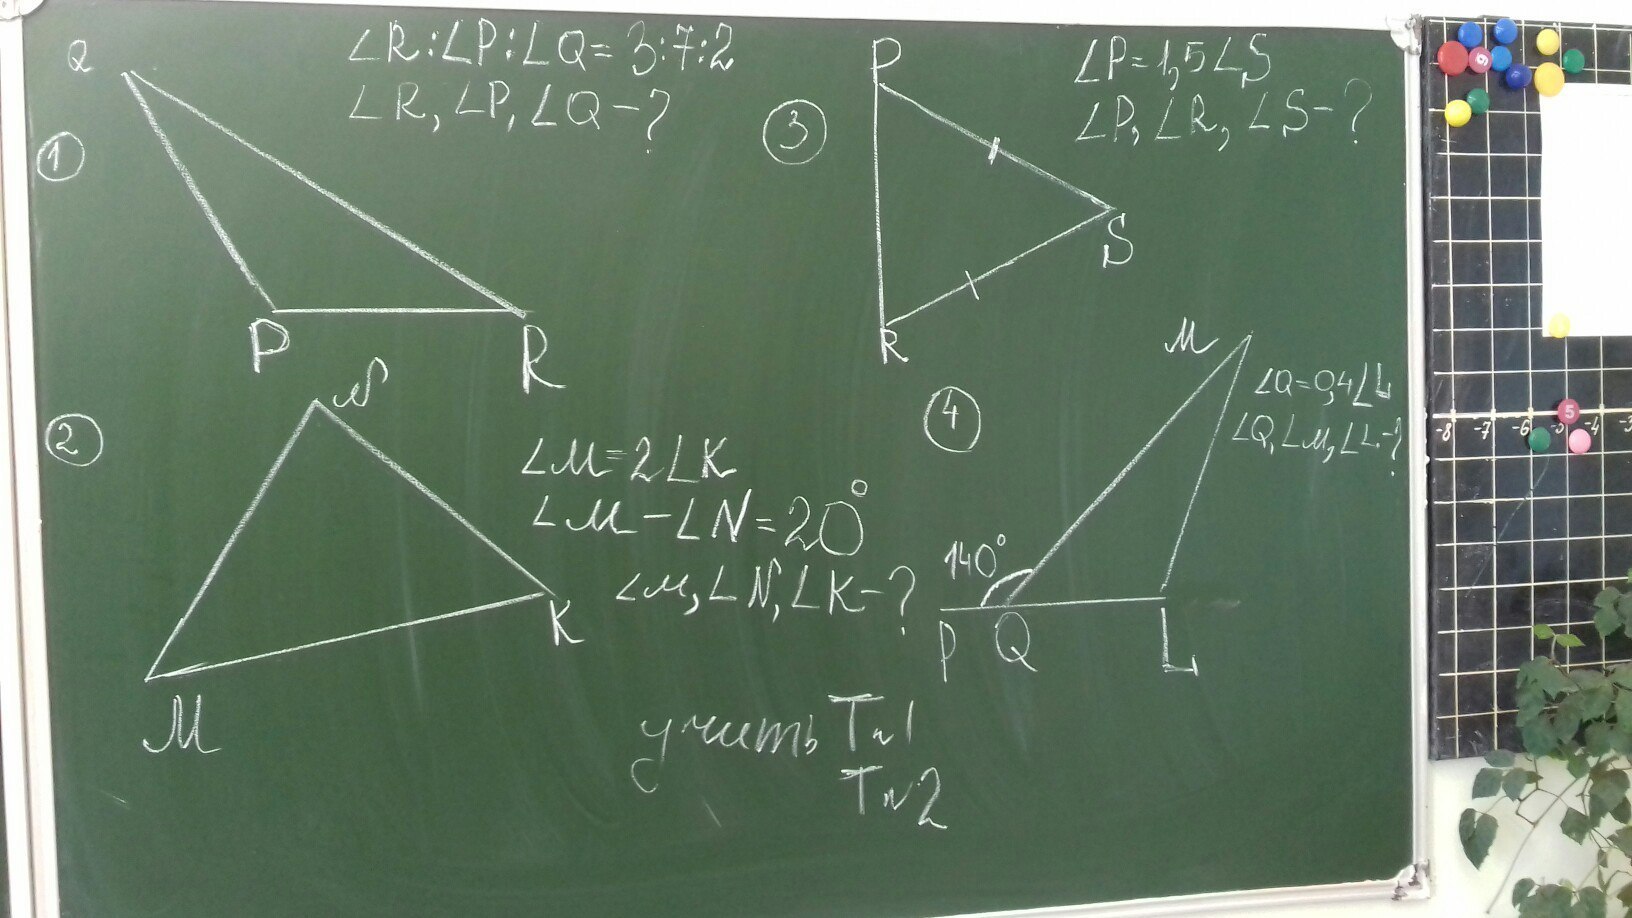 Q
∠R:∠P:∠Q=3:7:2
∠R, ∠P, ∠Q-?
1
P
R
P
∠P=1,5∠S
∠P, ∠R, ∠S-?
3
S
R
N
2
∠M=2∠K
∠M-∠N=20°
∠M, ∠N, ∠K-?
K
M
M
∠Q=0,4∠L
∠Q, ∠M, ∠L-?
4
140°
P Q L
учить Т№1
Т№2
-8 -7 -6 -5 -4 -3
5